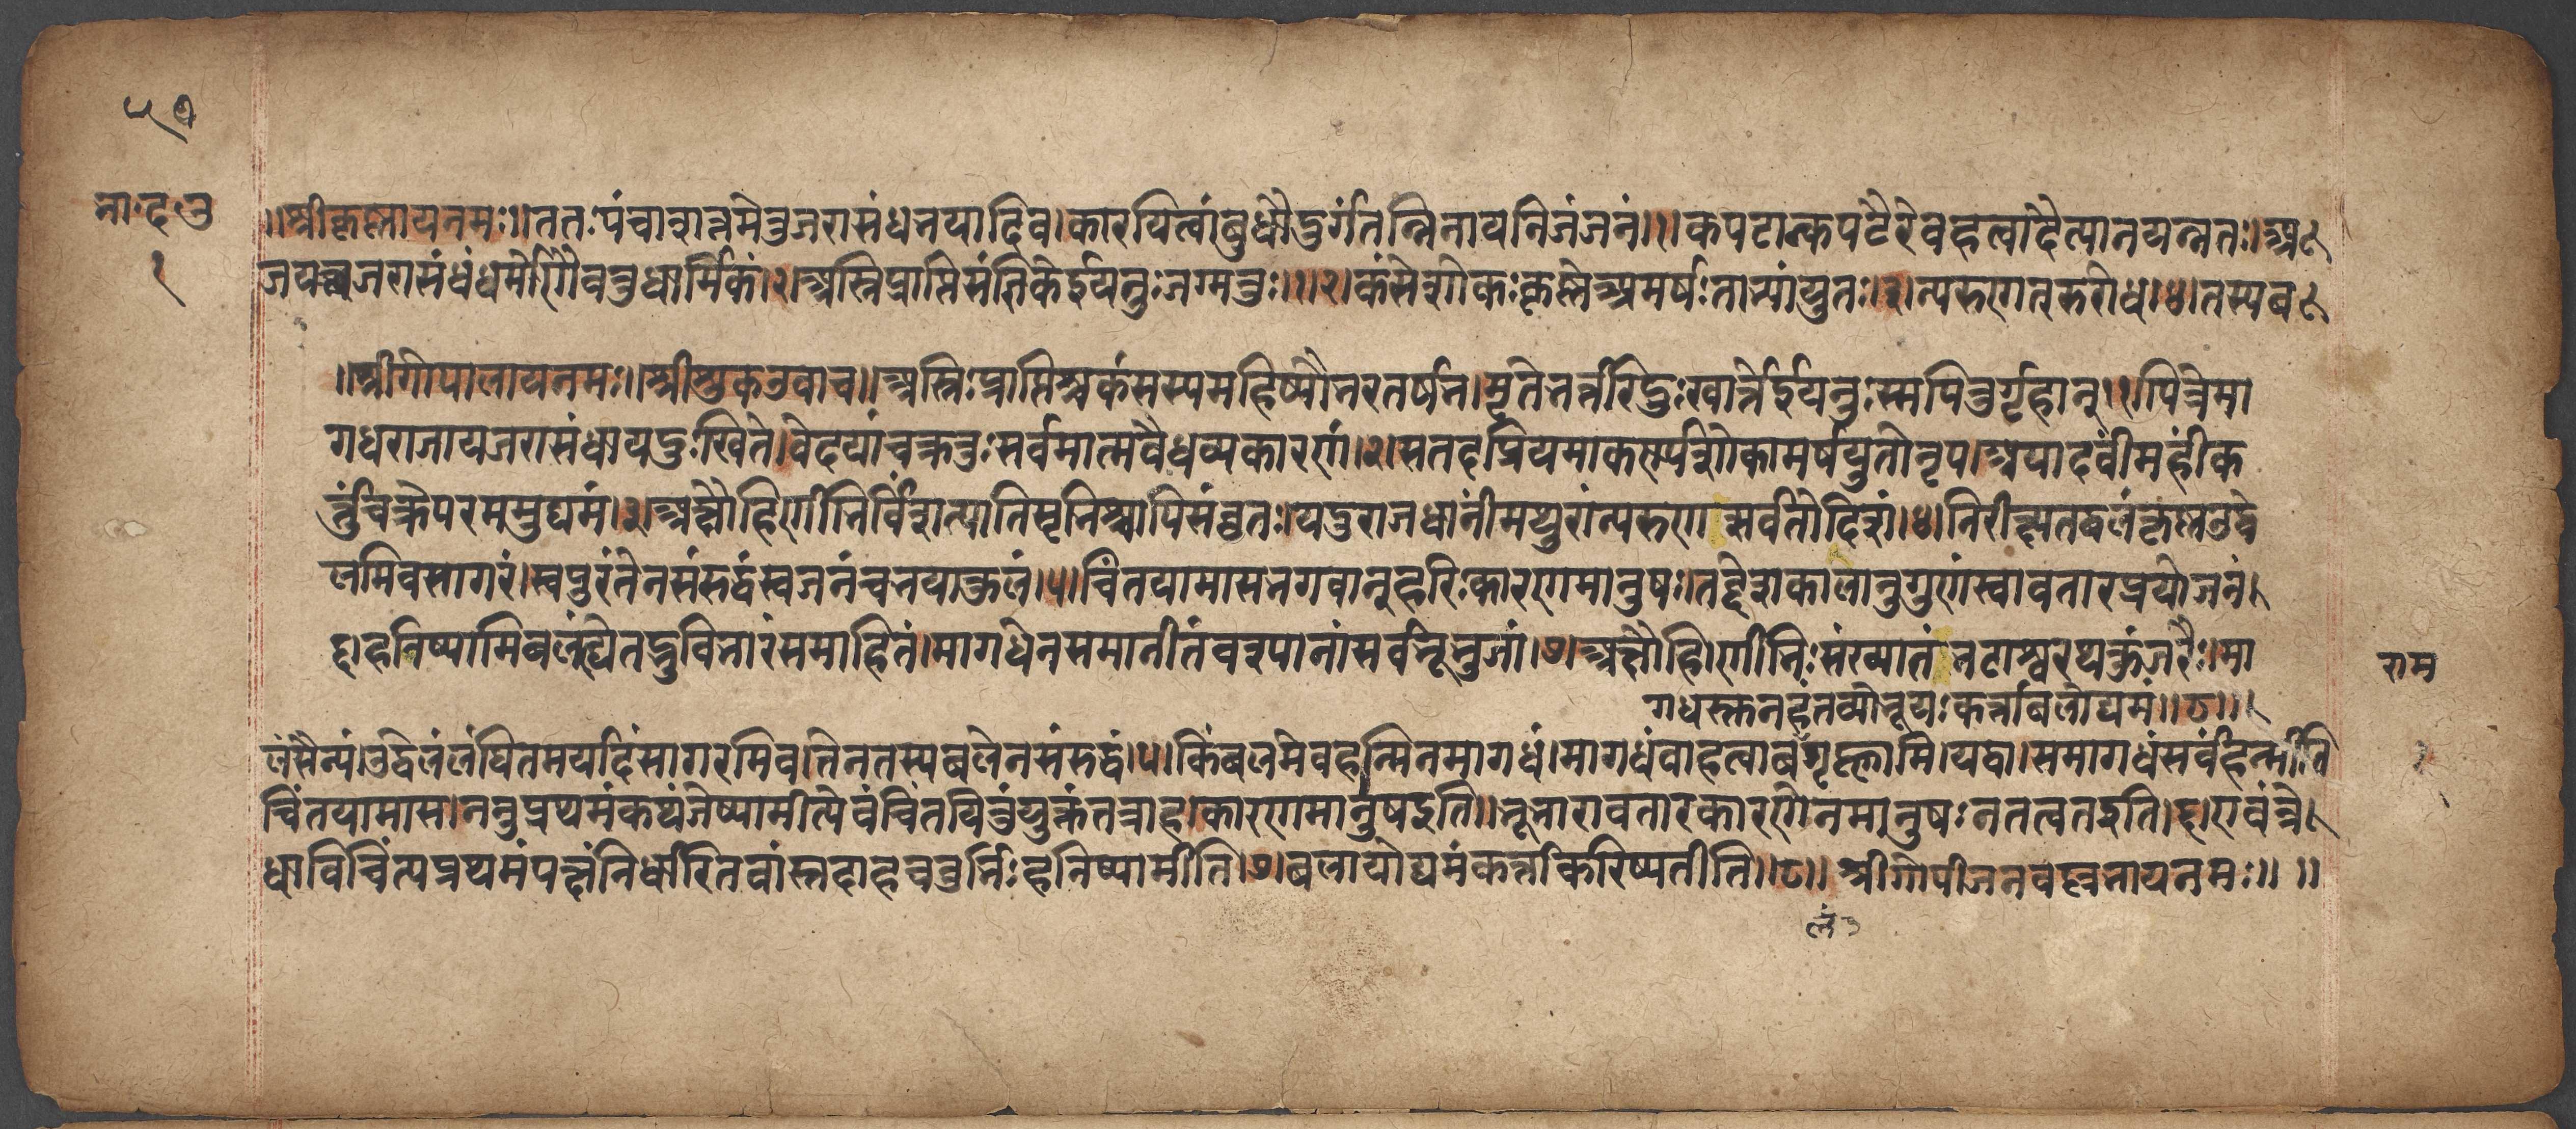 ५०
भा॰द॰उ
१
॥श्रीकृष्णायनमः॥ततःपंचाशत्तमेतुजरासंधभयादिव।कारयित्वांबुधौदुर्गंतन्निनायनिजंजनं॥१॥कपटात्कपटैरेवहत्वादैत्यानयत्नतः।अ
जयच्चजरासंधंधर्मेणैवतुधार्मिकं।२।अस्तिप्राप्तिसंज्ञिकेईयतुःजग्मतुः॥१।२।कंसेशोकःकृष्णेअमर्षःताभ्यांयुतः।३।न्यरुणत्रुरोध।४।तस्यब
॥श्रीगोपालायनमः॥श्रीशुकउवाच॥अस्तिःप्राप्तिश्चकंसस्यमहिष्यौभरतर्षभ।मृतेभर्त्तरिदुःखार्त्तेईयतुःस्मपितुर्गृहान्।१।पित्रेमा
गधराजायजरासंधायदुःखिते।वेदयांचक्रतुःसर्वमात्मवैधव्यकारणं।२।सतदप्रियमाकर्ण्यशोकामर्षयुतोनृप।अयादवींमहींक
र्त्तुंचक्रेपरममुद्यमं।३।अक्षौहिणीभिर्विंशत्यातिसृभिश्चापिसंवृतः।यदुराजधानींमथुरांन्यरुणत्सर्वतोदिशं।४।निरीक्ष्यतद्बलंकृष्णउद्वे
लमिवसागरं।स्वपुरंतेनसंरुद्धंस्वजनंचभयाकुलं।५।चिंतयामासभगवान्हरिःकारणमानुषः।तद्देशकालानुगुणंस्वावतारप्रयोजनं।
६।हनिष्यामिबलंह्येतद्भुविभारंसमाहितं।मागधेनसमानीतंवश्यानांसर्वभूभुजां।७।अक्षौहिणीभिःसंख्यातंभटाश्वरथकुंजरैः।मा
राम
गधस्तुनहंतव्योभूयःकर्त्ताबलोद्यमं॥८॥।
लंसैन्यं।उद्वेलंलंघितमर्यादंसागरमिव।तेनतस्यबलेनसंरुद्धं।५।किंबलमेवहन्मिनमागधं।मागधंवाहत्वाबगृह्णामि।यद्वा।समागधंसर्वंहन्मीति
चिंतयामास।ननुप्रथमंकथंजेष्यामीत्येवंचिंतयितुंयुक्तंतत्राह।कारणमानुषइति॥भूभारावतारकारणेनमानुषःनतत्वतइति।६।एवंत्रे
धाविचिंत्यप्रथमंपक्षंनिर्धारितवांस्तदाहचतुर्भिःहनिष्यामीति।७।बलायोद्यमंकर्त्ताकरिष्यतीति॥८॥श्रीगोपीजनवल्लभायनमः॥ ॥
लं३